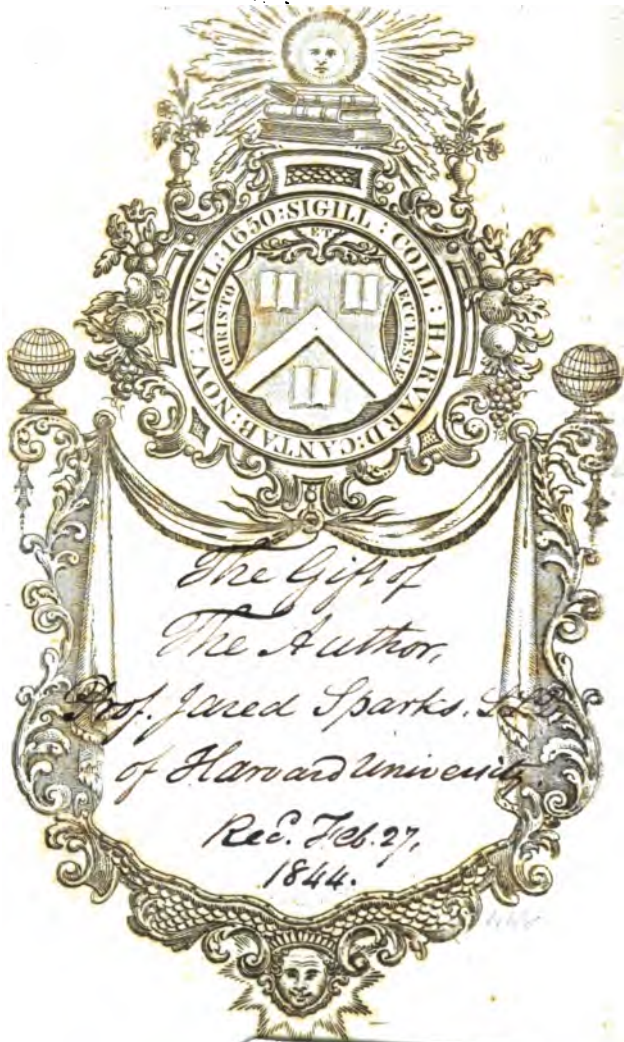 SIGILL : COLL : HARVARD : CANTAB : NOV : ANGL : 1650 :
CHRISTO ET ECCLESIÆ
The Gift of
The Author,
Prof. Jared Sparks.
of Harvard University
Rec. Feb. 27,
1844.